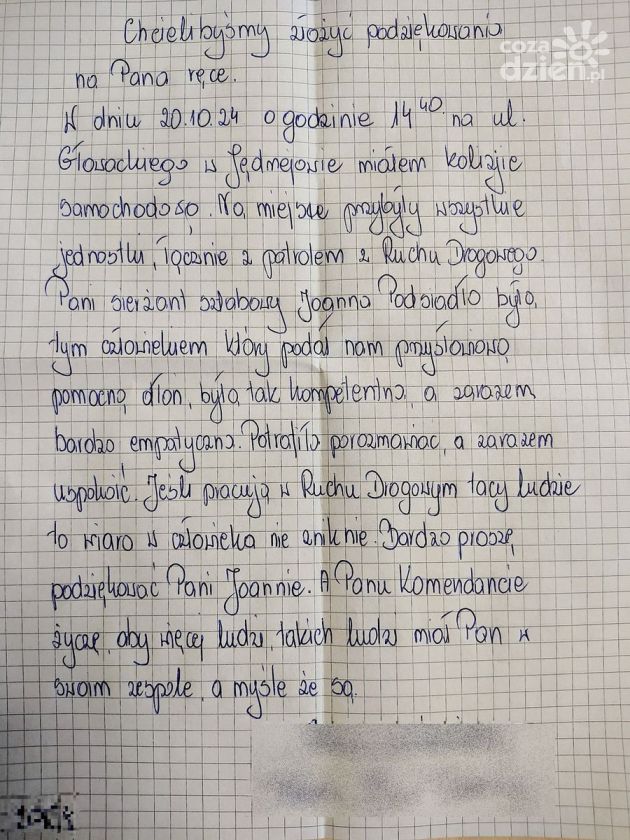 coza
dzień.pl
Chcielibyśmy złożyć podziękowania
na Pana ręce.
W dniu 20.10.24 o godzinie 14 40 na ul.
Głowackiego w Jędrzejowie miałem kolizje
samochodową. Na miejsce przybyły wszystkie
jednostki, łącznie z patrolem z Ruchu Drogowego.
Pani sierżant sztabowy Joanna Podsiadło była
tym człowiekiem który podał nam przysłowiową
pomocną dłoń, była tak kompetentna, a zarazem
bardzo empatyczna. Potrafiła porozmawiać, a zarazem
uspokoić. Jeśli pracują w Ruchu Drogowym tacy ludzie
to wiara w człowieka nie zniknie. Bardzo proszę
podziękować Pani Joannie. A Panu Komendancie
życzę, aby więcej ludzi, takich ludzi miał Pan w
swoim zespole, a myśle że są.